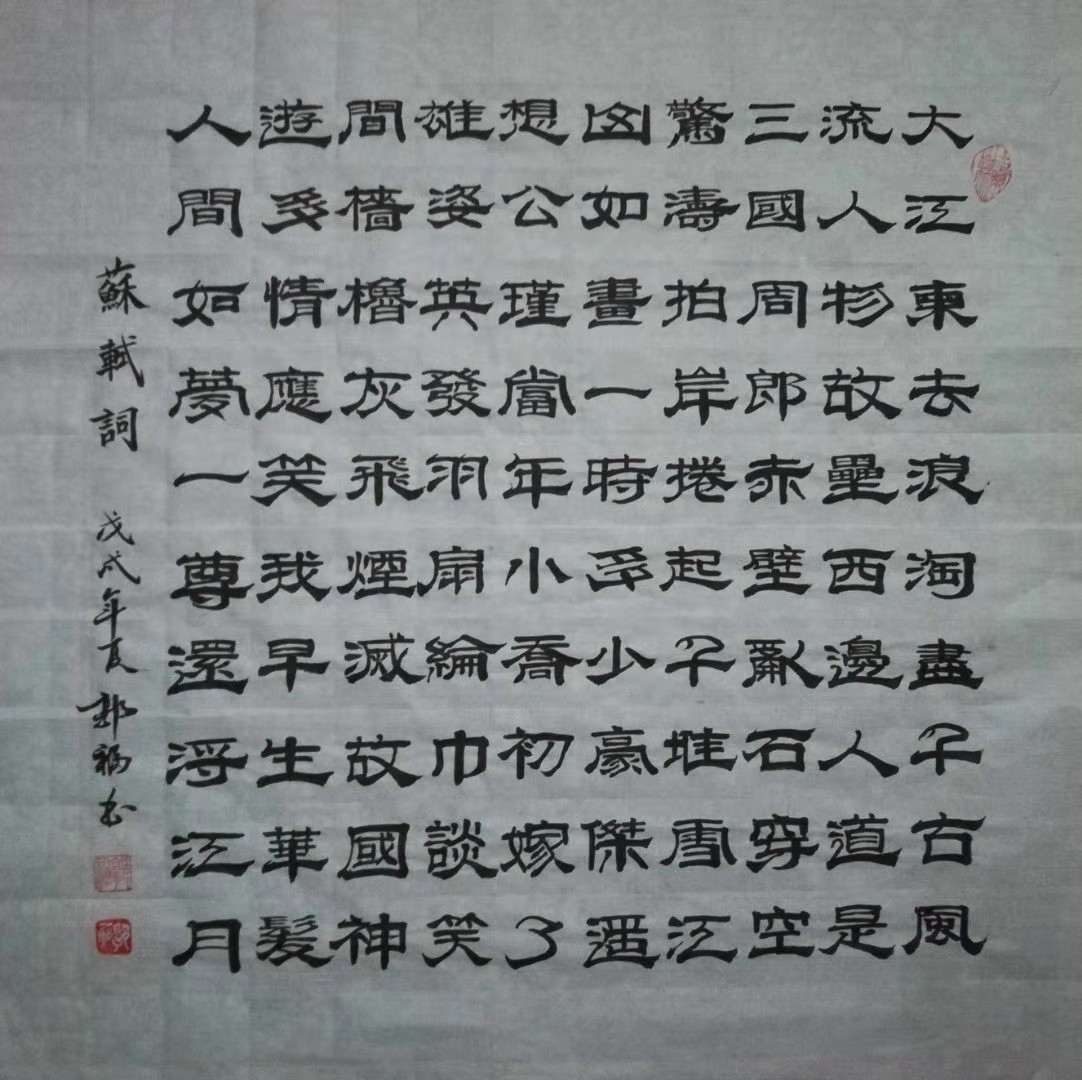 大江東去浪淘盡千古風
流人物故壘西邊人道是
三國周郎赤壁亂石穿空
驚濤拍岸捲起千堆雪江
山如畫一時多少豪傑遙
想公瑾當年小喬初嫁了
雄姿英發羽扇綸巾談笑
間檣櫓灰飛煙滅故國神
遊多情應笑我早生華髮
人間如夢一尊還酹江月
蘇軾詞 戊戌年夏 郭福书